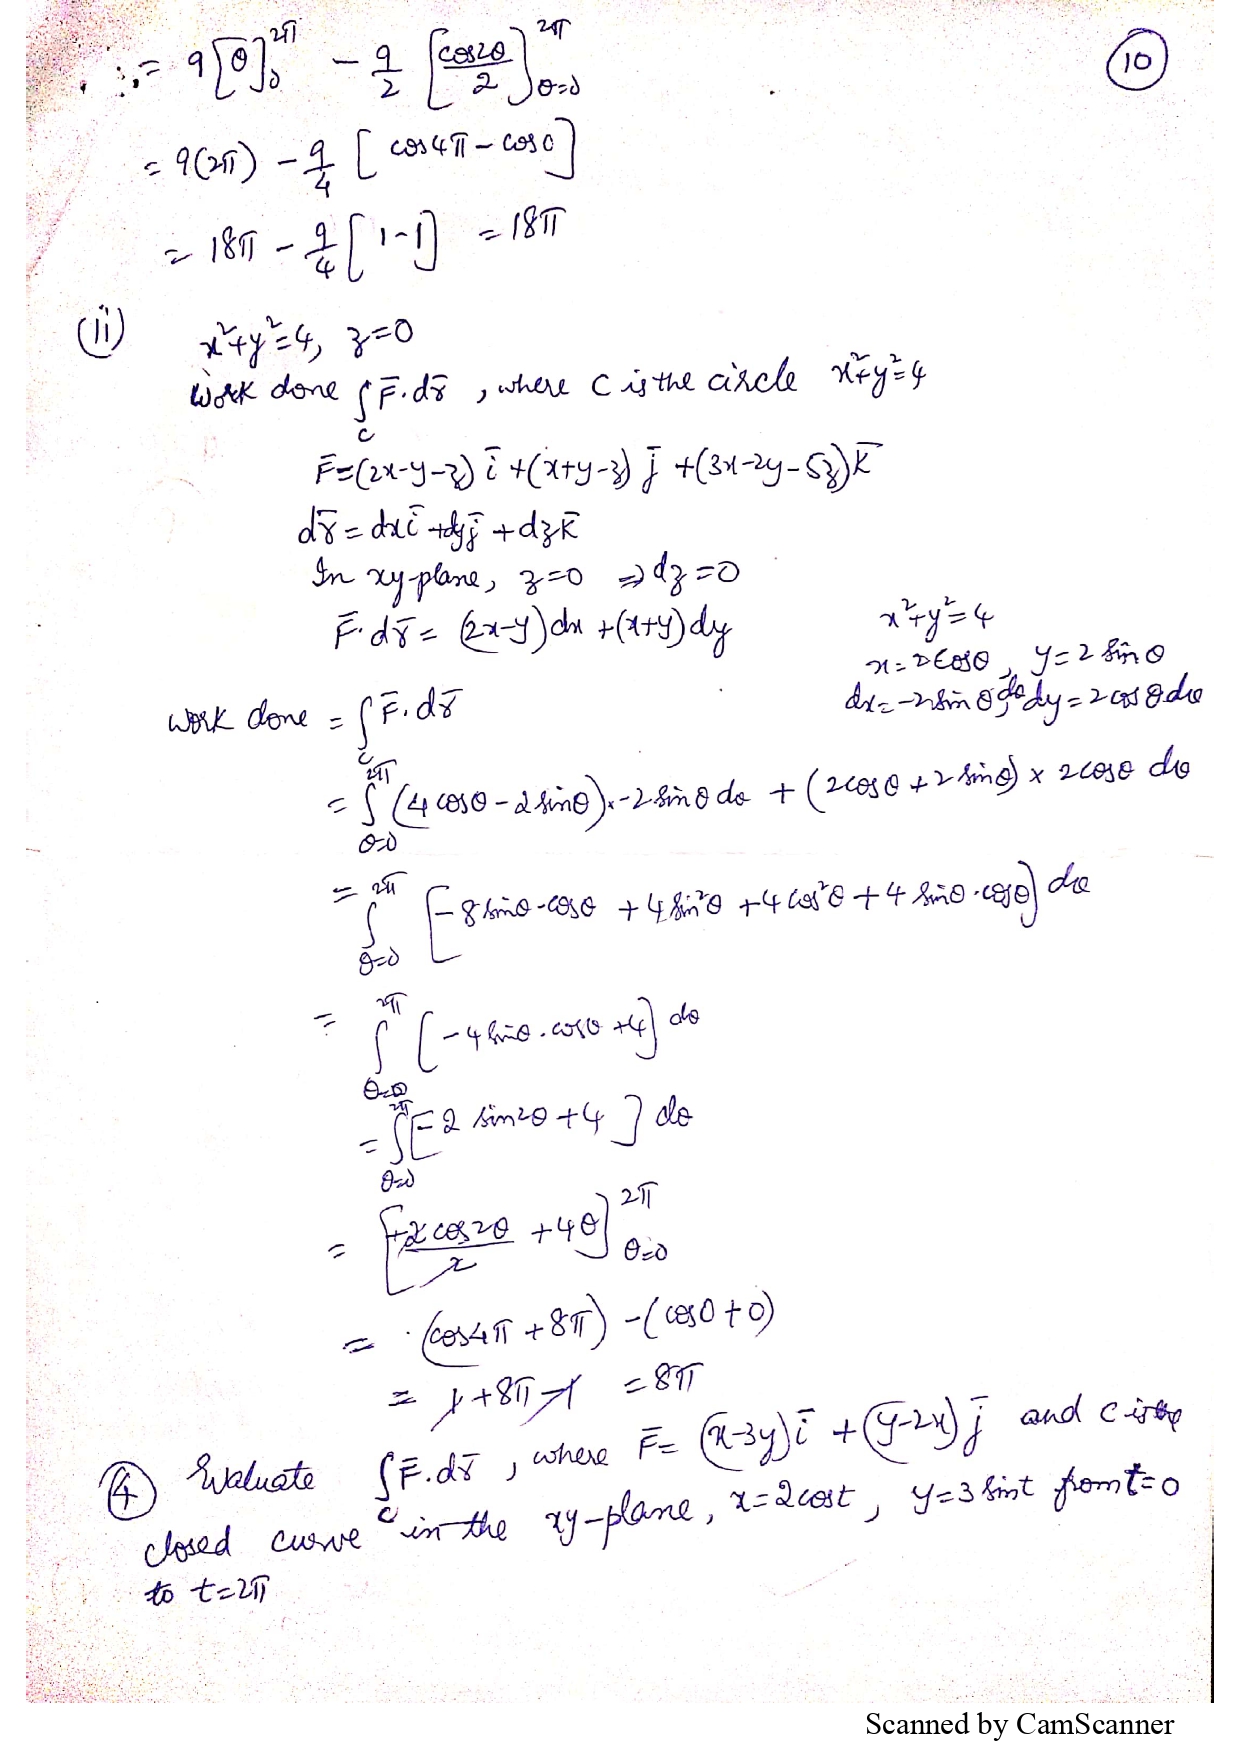 ∴ = 9[θ]₀^{2π} − 9/2 [cos2θ/2]_{θ=0}^{2π}
10
= 9(2π) − 9/4 [cos4π − cos0]
= 18π − 9/4 [1−1] = 18π
(ii) x²+y²=4, z=0
Work done ∫_C F̄.dr̄, where C is the circle x²+y²=4
F̄=(2x−y−z) ī +(x+y−z) j̄ +(3x−2y−5z)k̄
dr̄ = dxī +dyj̄ +dzk̄
In xy-plane, z=0 ⇒dz=0
F̄.dr̄ = (2x−y)dx +(x+y)dy
x²+y²=4
x=2cosθ, y=2 sinθ
dx=−2sinθ dθ, dy=2cosθdθ
Work done = ∫_C F̄.dr̄
= ∫_{θ=0}^{2π} (4cosθ−2sinθ)×−2sinθdθ + (2cosθ+2sinθ)×2cosθ dθ
= ∫_{θ=0}^{2π} [−8sinθ.cosθ +4sin²θ +4cos²θ+4 sinθ.cosθ] dθ
= ∫_{θ=0}^{2π} [−4sinθ.cosθ+4] dθ
= ∫_{θ=0}^{2π} [−2 sin2θ+4] dθ
= [+2cos2θ/2 +4θ]_{θ=0}^{2π}
= (cos4π +8π) −(cos0+0)
= 1+8π−1 =8π
④ Evaluate ∫_C F̄.dr̄, where F̄= (x−3y)ī +(y−2x)j̄ and C is the
closed curve in the xy-plane, x=2cost, y=3 sint from t=0
to t=2π
Scanned by CamScanner